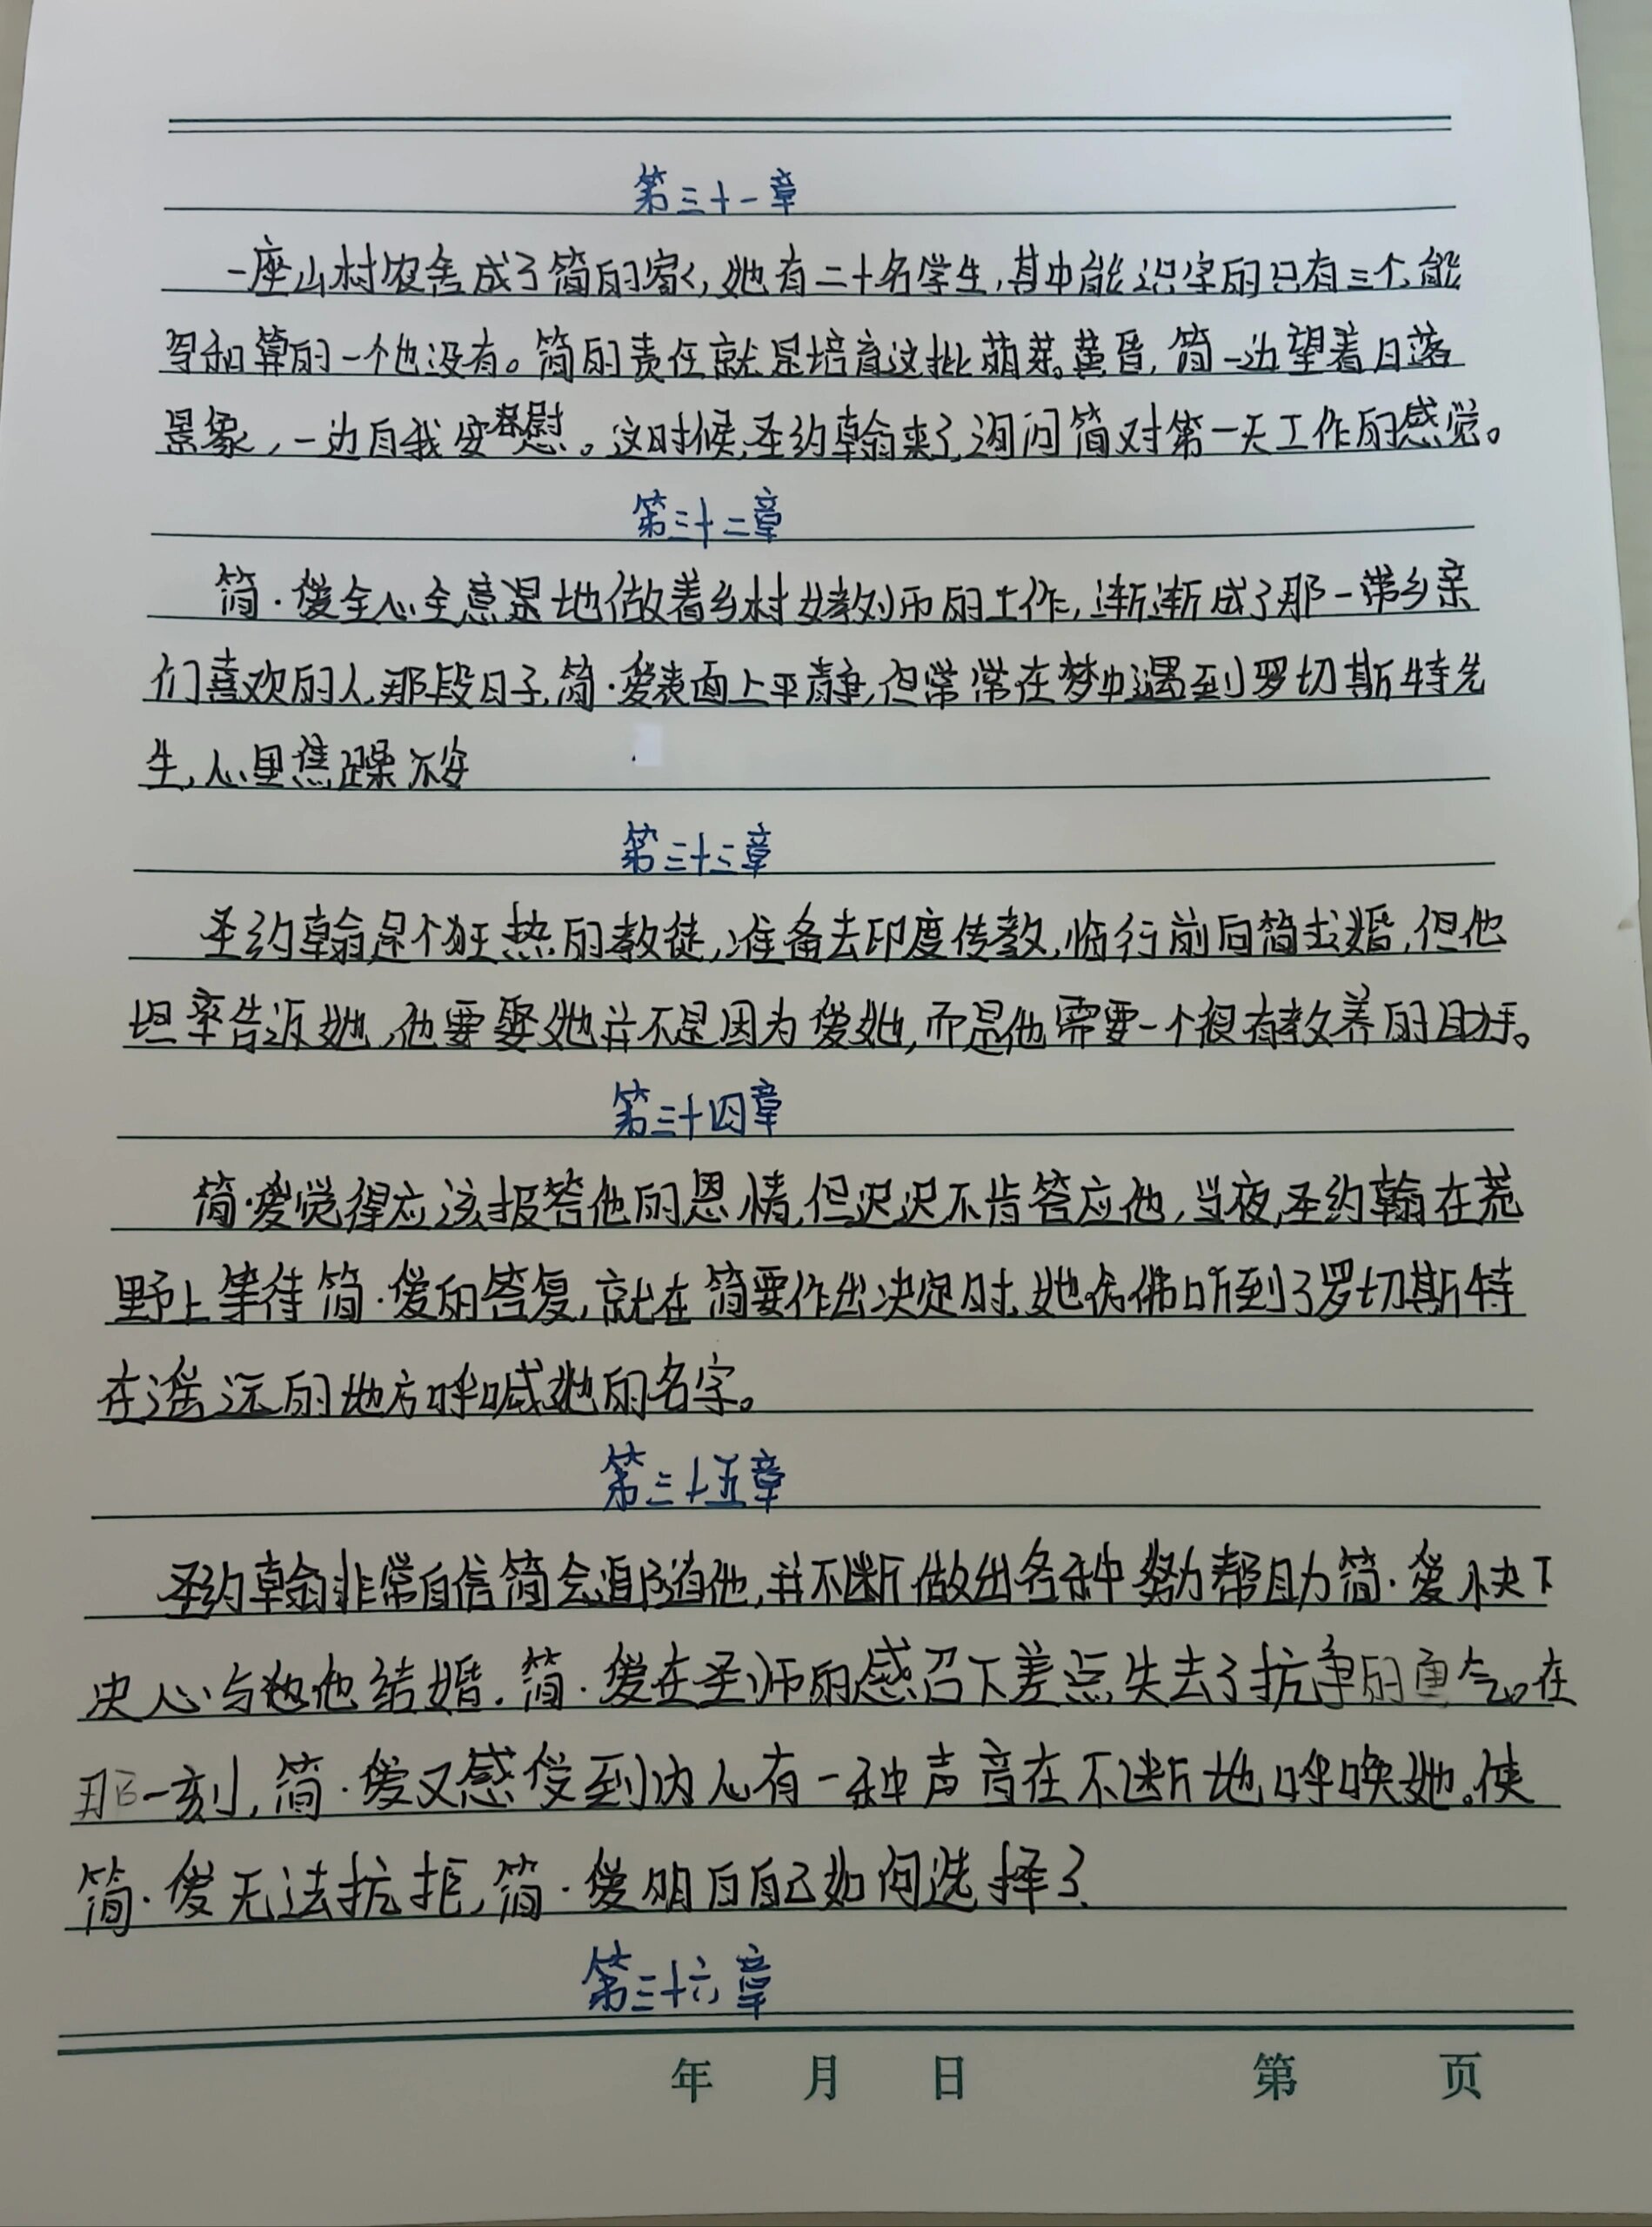 第三十一章
一座山村农舍成了简的家，她有二十名学生，其中能识字的只有三个，能
写和算的一个也没有。简的责任就是培育这批萌芽。黄昏，简一边望着日落
景象，一边自我安慰。这时候，圣约翰来了，询问简对第一天工作的感觉。
第三十二章
简·爱全心全意地做着乡村女教师的工作，渐渐成了那一带乡亲
们喜欢的人，那段日子，简·爱表面上平静，但常常在梦中遇到罗切斯特先
生，心里焦躁不安
第三十三章
圣约翰是个狂热的教徒，准备去印度传教，临行前向简求婚，但他
坦率告返她，他要娶她并不是因为爱她，而是他需要一个很有教养的助手。
第三十四章
简·爱觉得应该报答他的恩情，但迟迟不肯答应他，当夜，圣约翰在荒
野上等待简·爱的答复，就在简要作出决定时，她仿佛听到了罗切斯特
在遥远的地方呼喊她的名字。
第三十五章
圣约翰非常自信简会追随他，并不断做出各种努力帮助简·爱快下
决心与他结婚．简·爱在圣师的感召下差点失去了抗争的勇气。在
那一刻，简·爱又感受到内心有一种声音在不断地呼唤她。使
简·爱无法抗拒，简·爱明白自己如何选择了．
第三十六章
年 月 日 第 页